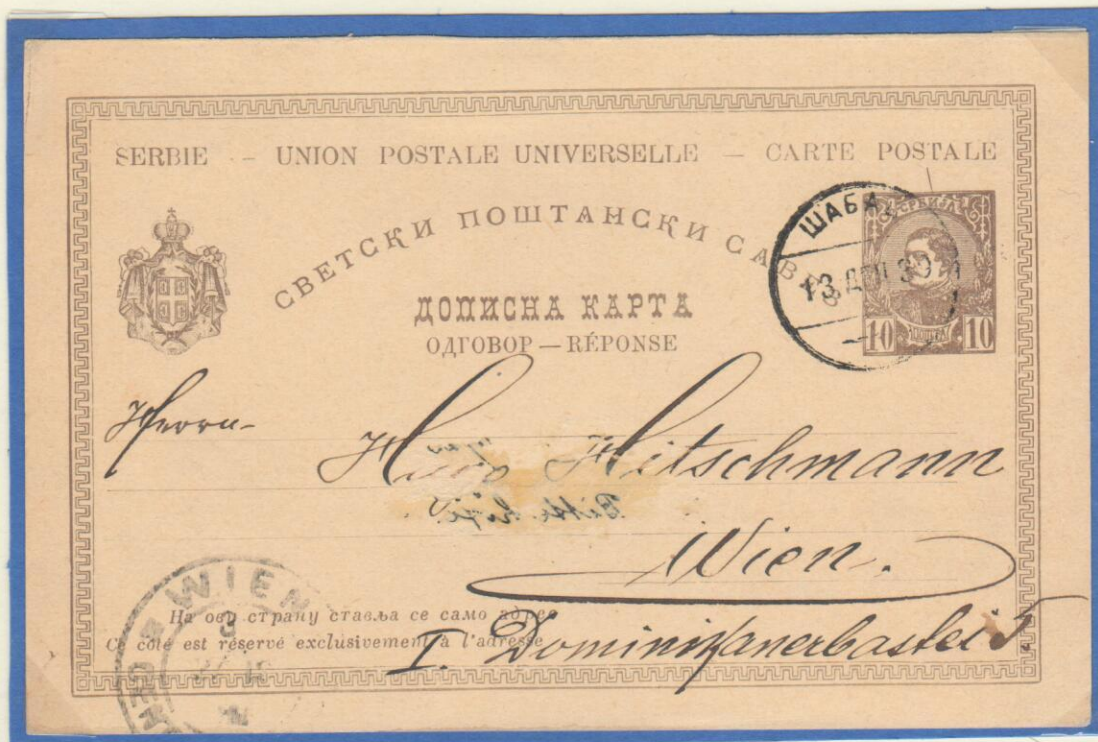 SERBIE – UNION POSTALE UNIVERSELLE – CARTE POSTALE
СВЕТСКИ ПОШТАНСКИ САВЕЗ
ДОПИСНА КАРТА
ОДГОВОР — RÉPONSE
СРБИЈА
10 10
ШАБАЦ
Herrn
Hugo Hitschmann
Wien.
I. Dominikanerbastei 5.
На ову страну ставља се само адресе
Ce côté est réservé exclusivement à l'adresse
WIEN
3